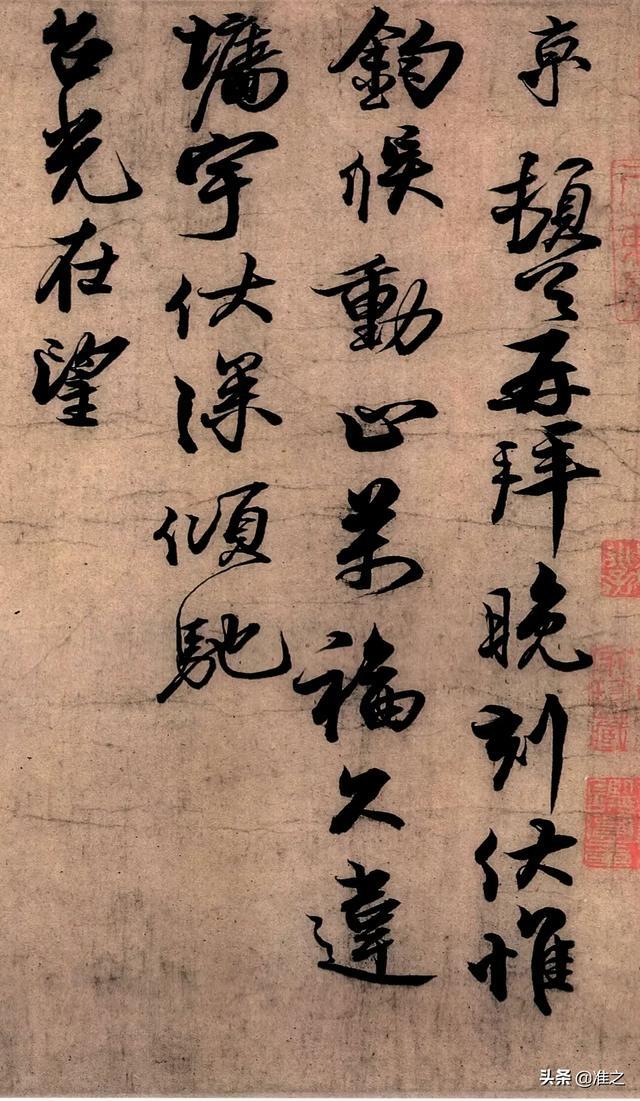 京 頓首再拜晚刻伏惟
鈞候動止萬福久違
墉宇伏深傾馳
台光在望
头条 @准之